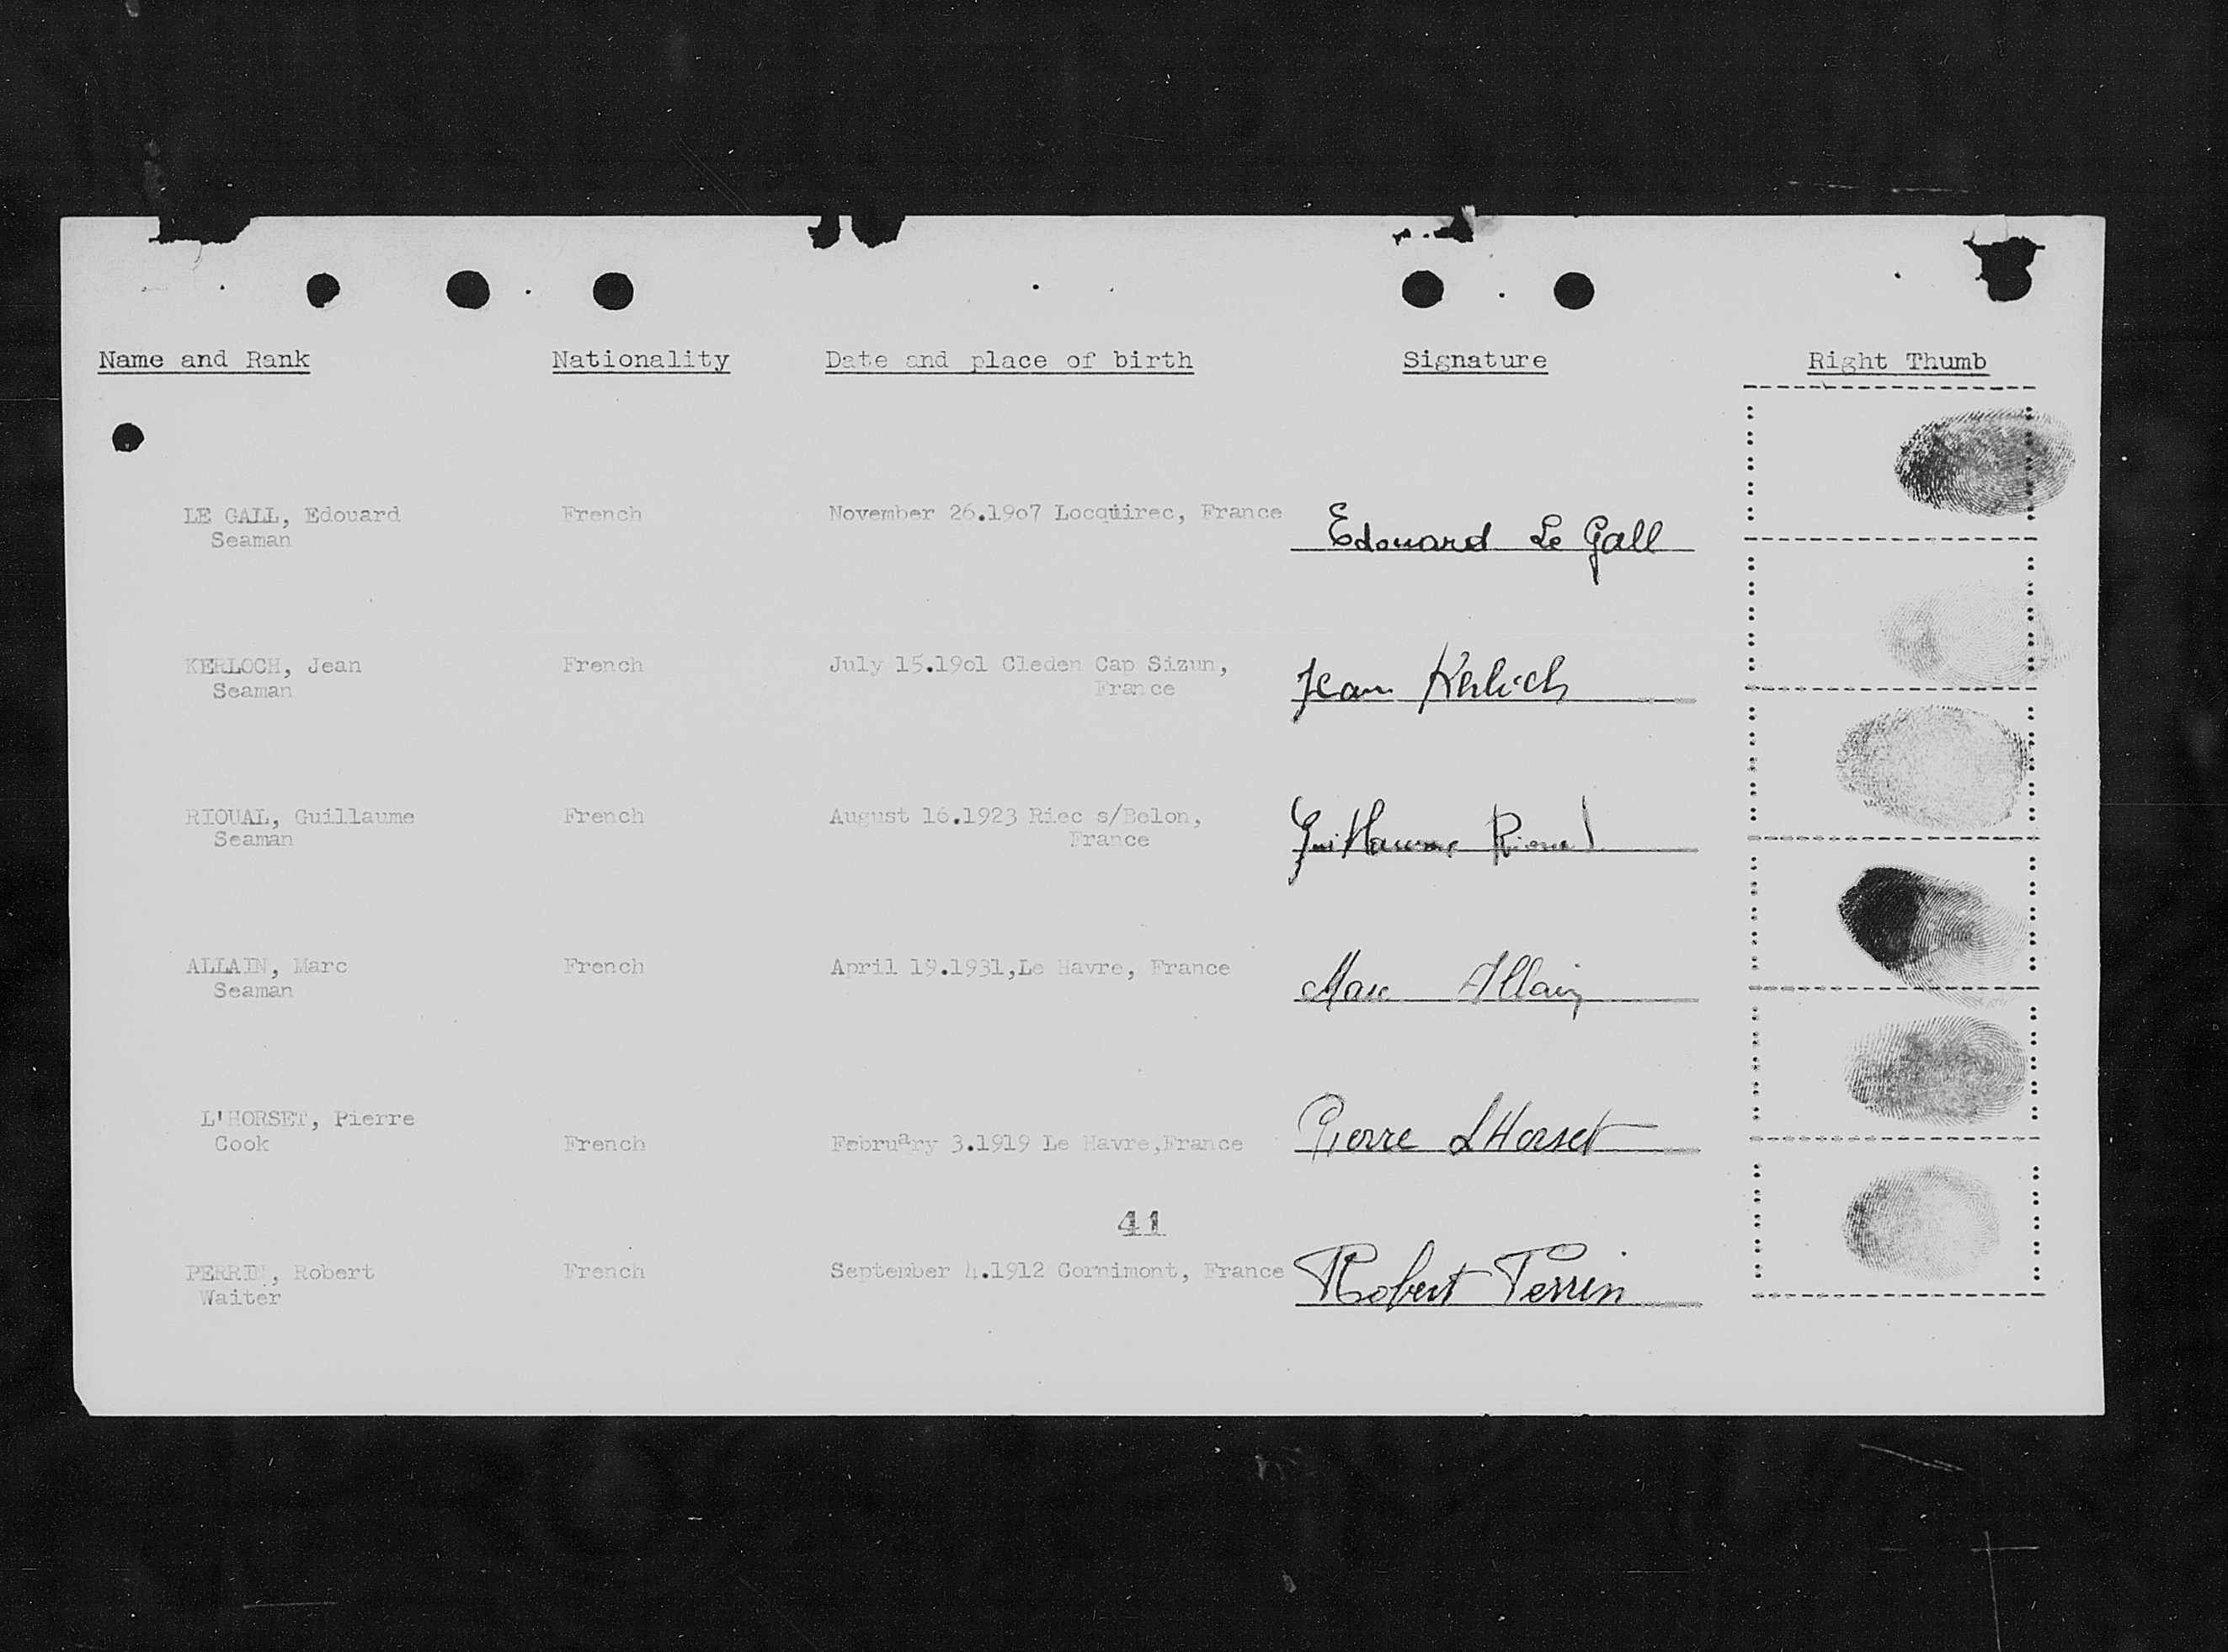 Name and Rank Nationality Date and place of birth Signature Right Thumb
LE GALL, Edouard French November 26.19o7 Locquirec, France Edouard Le Gall
Seaman
KERLOCH, Jean French July 15.19o1 Cleden Cap Sizun, Jean Kerloch
Seaman France
RIOUAL, Guillaume French August 16.1923 Riec s/Belon, Guillaume Rioual
Seaman France
ALLAIN, Marc French April 19.1931,Le Havre, France Marc Allain
Seaman
L'HORSET, Pierre Pierre L'Horset
Cook French February 3.1919 Le Havre,France
41
PERRIN, Robert French September 4.1912 Cornimont, France Robert Perrin
Waiter